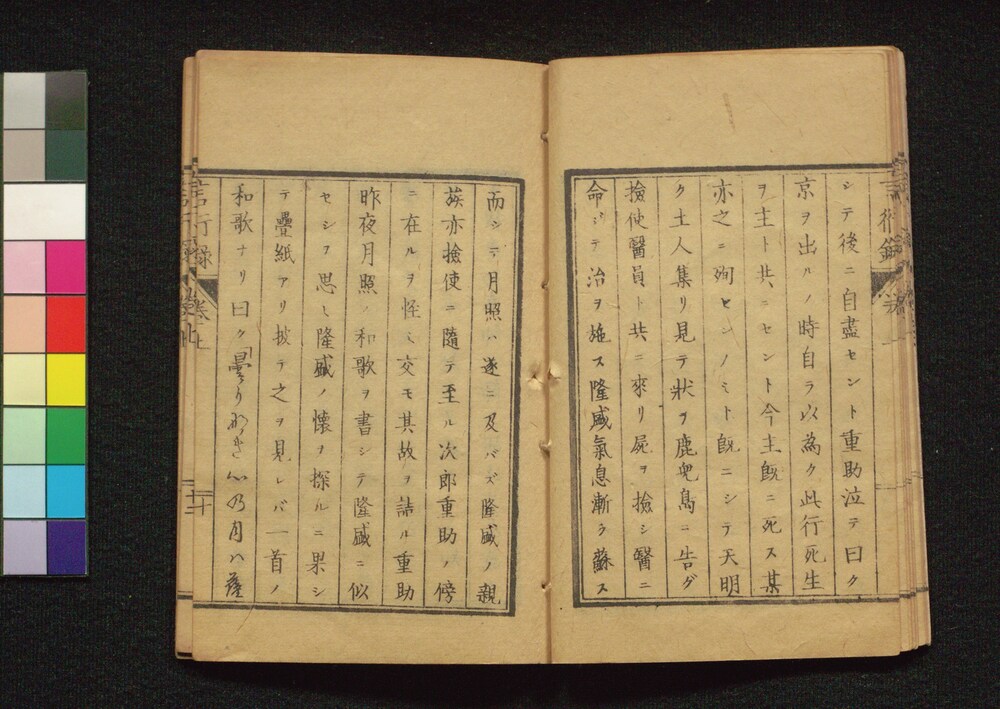 シテ後ニ自盡セント重助泣テ曰ク
京ヲ出ルノ時自ラ以為ク此行死生
ヲ主ト共ニセント今主既ニ死ス某
亦之ニ殉センノミト既ニシテ天明
ク土人集リ見テ狀ヲ鹿兒島ニ告グ
撿使醫員ト共ニ來リ屍ヲ撿シ醫ニ
命ジテ治ヲ施ス隆盛氣息漸ク蘇ス
而シテ月照ハ遂ニ及バズ隆盛ノ親
族亦撿使ニ隨テ至ル次郎重助ノ傍
ニ在ルヲ怪ミ交モ其故ヲ詰ル重助
昨夜月照ノ和歌ヲ書シテ隆盛ニ似
セシヲ思ヒ隆盛ノ懷ヲ探ルニ果シ
テ疊紙アリ披テ之ヲ見レバ一首ノ
和歌ナリ曰ク曇りなき心乃月ハ薩
言行錄